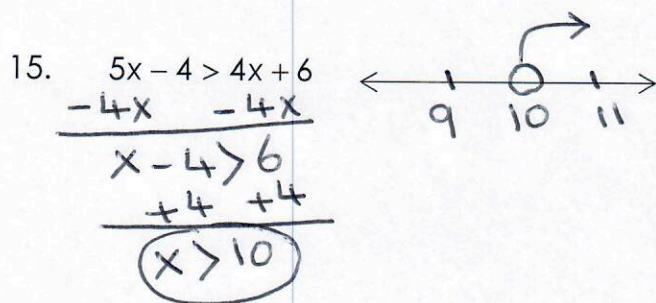 15. 5x – 4 > 4x + 6
-4x -4x
x - 4 > 6
+4 +4
x > 10
9 10 11